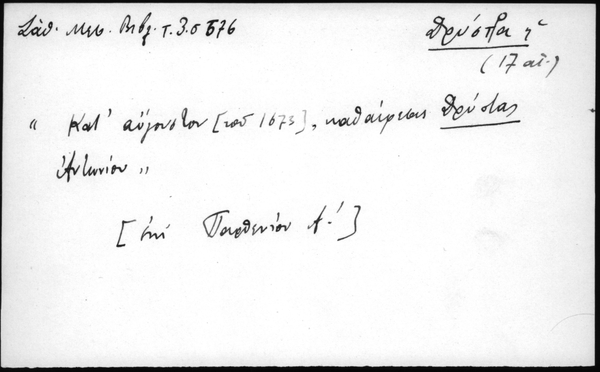 Σάθ. Μεσ. Βιβλ. τ. 3. σ 576
Δρύστρα ἡ
(17 αἰ.)
" Κατ' αὔγουστον [τοῦ 1673], καθαίρεσις Δρύστας
Ἀντωνίου "
[ἐπὶ Παρθενίου Δ.']